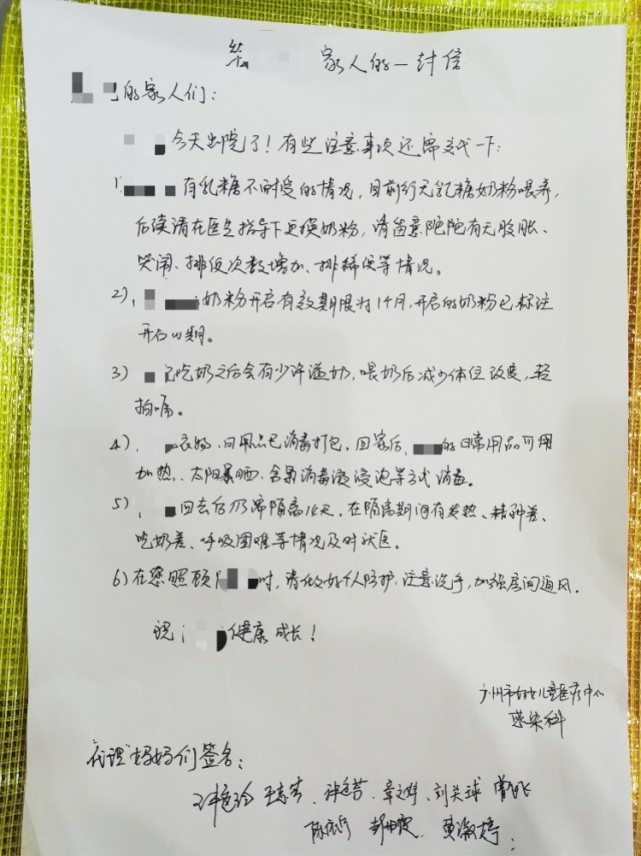 给 家人的一封信
的家人们：
今天出院了！有些注意事项还需交代一下：
1） 有乳糖不耐受的情况，目前行无乳糖奶粉喂养，
后续请在医生指导下更换奶粉，请留意陀陀有无腹胀、
哭闹、排便次数增加、排稀便等情况。
2）、 奶粉开启有效期限为1个月，开启的奶粉已标注
开启日期。
3） 吃奶之后会有少许溢奶，喂奶后减少体位改变，轻
拍嗝。
4）、 衣物、日用品已消毒打包。回家后， 的日常用品可用
加热、太阳暴晒、含氯消毒液浸泡等方式消毒。
5）、 回去后仍需隔离14天，在隔离期间有发热、精神差、
吃奶差、呼吸困难等情况及时就医。
6）在您照顾 时，请做好个人防护，注意洗手，加强房间通风。
祝 健康成长！
广州市妇女儿童医疗中心
感染科
代理妈妈们签名：
黄淑婷